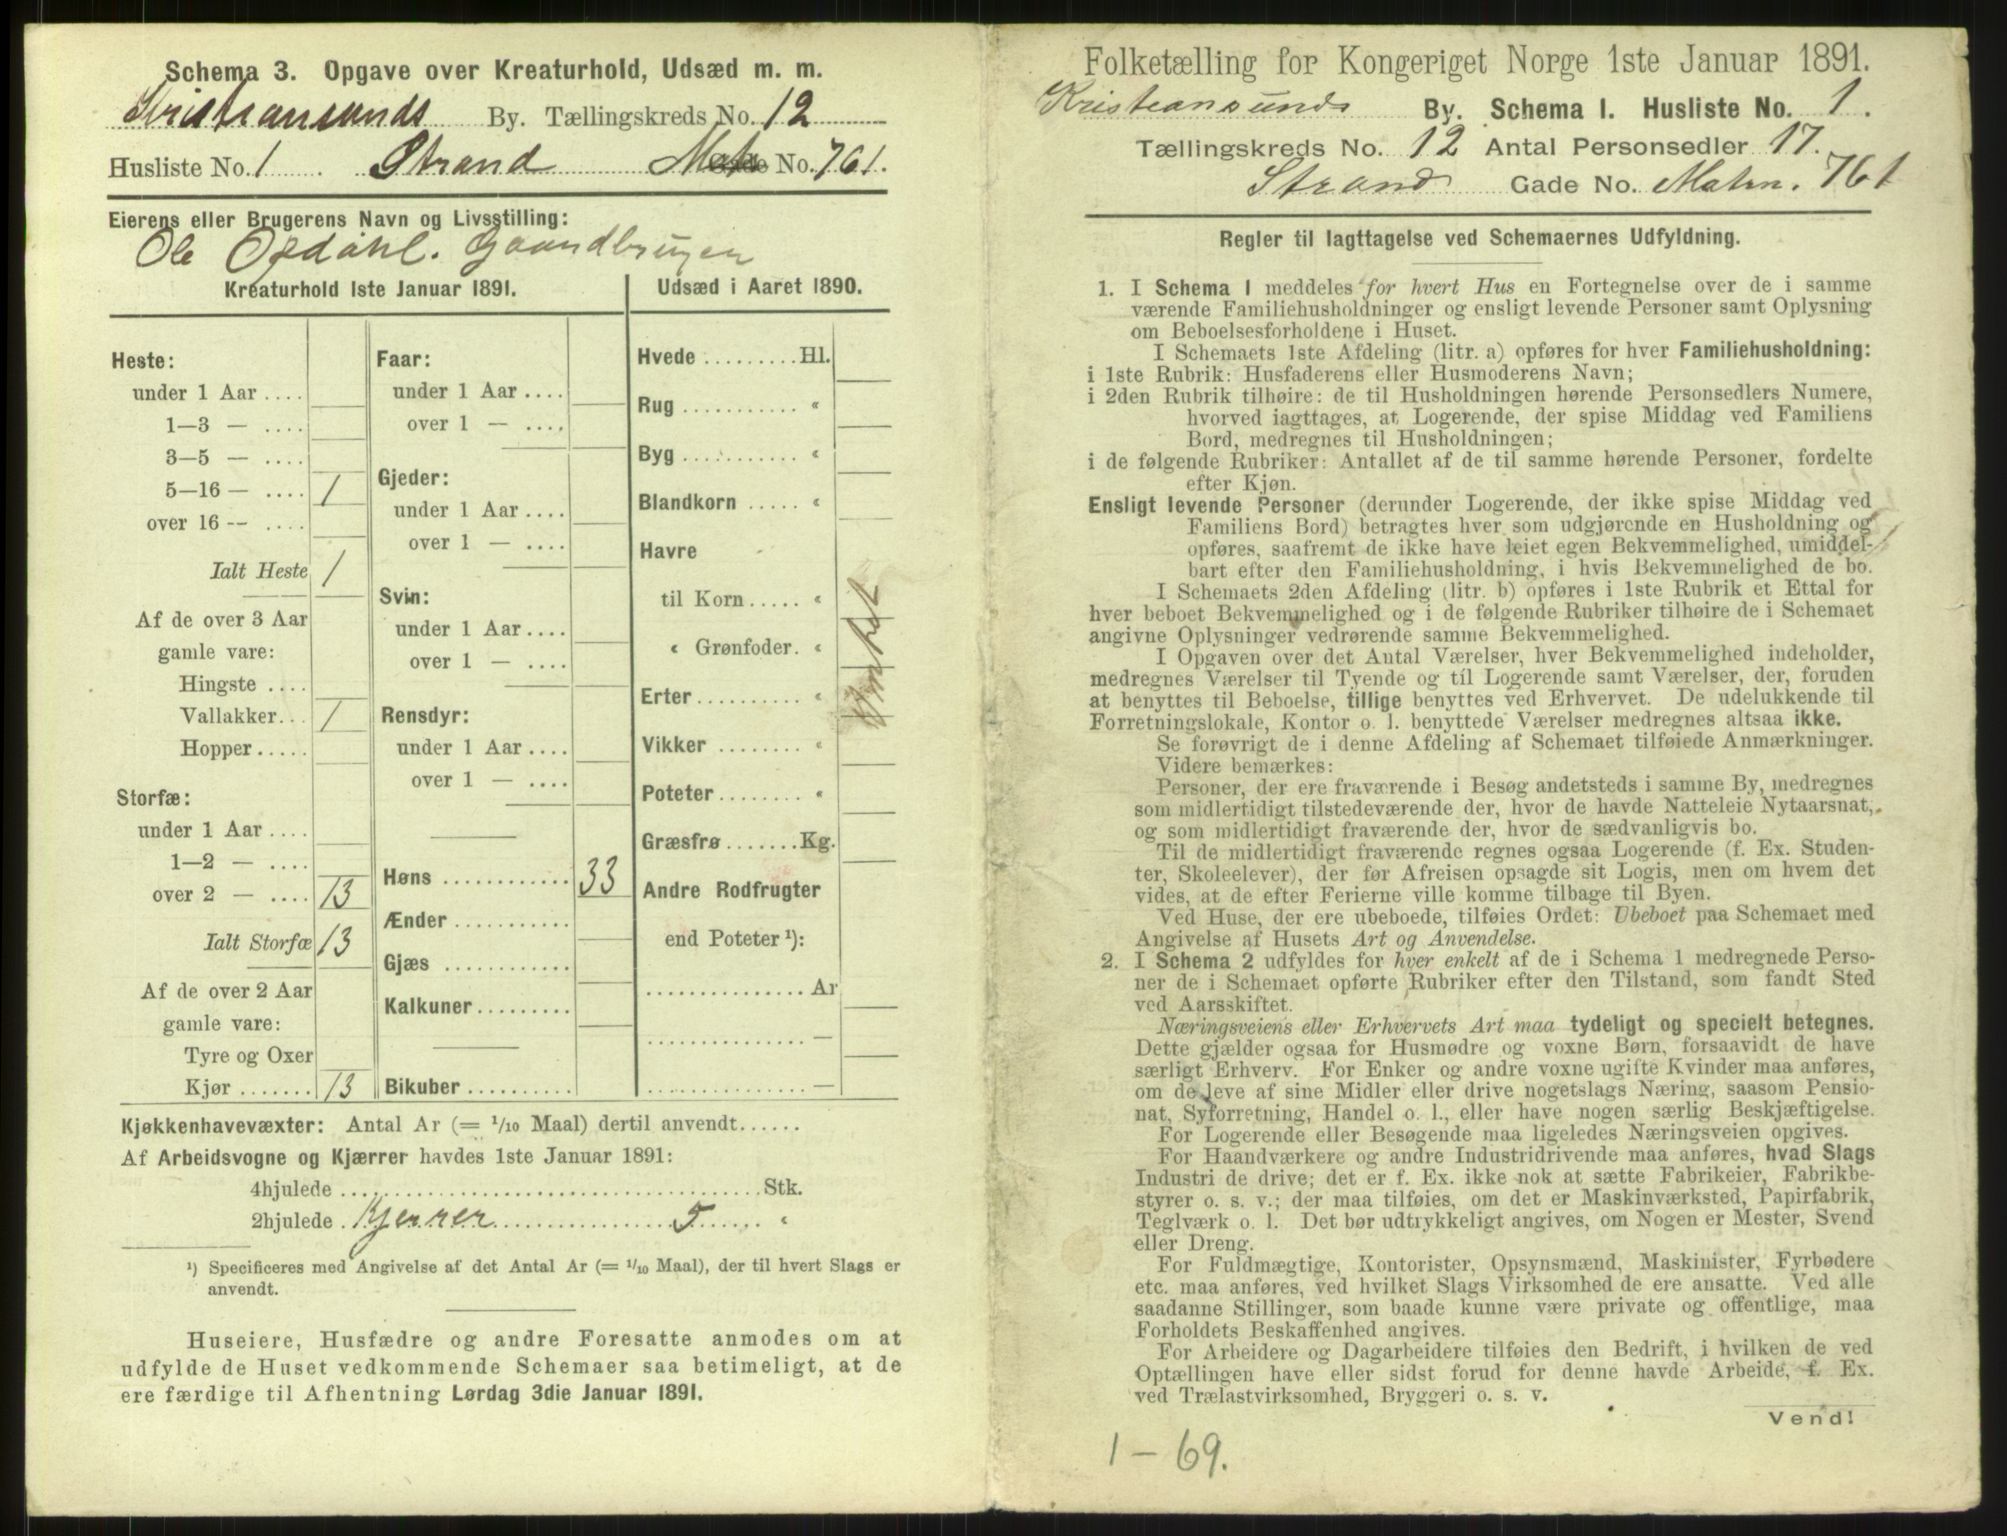 Schema 3. Opgave over Kreaturhold, Udsæd m. m.
Kristiansunds By. Tællingskreds No. 12
Husliste No. 1 . Strand Mat No. 761.
Eierens eller Brugerens Navn og Livsstilling:
Ole Opdahl. Gaardbruger
Kreaturhold 1ste Januar 1891.
Heste:
under 1 Aar ....
1—3 — ....
3—5 — ....
5—16 — .... 1
over 16 -- ....
Ialt Heste 1
Af de over 3 Aar
gamle vare:
Hingste ....
Vallakker... 1
Hopper.....
Storfæ:
under 1 Aar ....
1—2 — ....
over 2 — .... 13
Ialt Storfæ 13
Af de over 2 Aar
gamle vare:
Tyre og Oxer
Kjør ....... 13
Faar:
under 1 Aar ....
over 1 — ....
Gjeder:
under 1 Aar ....
over 1 — ....
Svin:
under 1 Aar ....
over 1 — ....
Rensdyr:
under 1 Aar ....
over 1 — ....
Høns ............ 33
Ænder ...........
Gjæs ............
Kalkuner.........
Bikuber..........
Udsæd i Aaret 1890.
Hvede .........Hl.
Rug ........... «
Byg ........... «
Blandkorn ..... «
Havre
til Korn ..... «
« Grønfoder. «
Erter ......... «
Vikker ........ «
Poteter........ «
Græsfrø .......Kg.
Andre Rodfrugter
end Poteter ¹):
............... Ar
............... —
............... —
Kjøkkenhavevæxter: Antal Ar (= 1/10 Maal) dertil anvendt......
Af Arbeidsvogne og Kjærrer havdes 1ste Januar 1891:
4hjulede ........................................Stk.
2hjulede . Kjerrer ............ 5 ...... «
¹) Specificeres med Angivelse af det Antal Ar (= 1/10 Maal), der til hvert Slags er
anvendt.
Huseiere, Husfædre og andre Foresatte anmodes om at
udfylde de Huset vedkommende Schemaer saa betimeligt, at de
ere færdige til Afhentning Lørdag 3die Januar 1891.
Folketælling for Kongeriget Norge 1ste Januar 1891.
Kristiansunds By. Schema I. Husliste No. 1.
Tællingskreds No. 12 Antal Personsedler 17.
Strand Gade No. Matrn. 761
Regler til Iagttagelse ved Schemaernes Udfyldning.
1. I Schema I meddeles for hvert Hus en Fortegnelse over de i samme
værende Familiehusholdninger og ensligt levende Personer samt Oplysning
om Beboelsesforholdene i Huset.
I Schemaets 1ste Afdeling (litr. a) opføres for hver Familiehusholdning:
i 1ste Rubrik: Husfaderens eller Husmoderens Navn;
i 2den Rubrik tilhøire: de til Husholdningen hørende Personsedlers Numere,
hvorved iagttages, at Logerende, der spise Middag ved Familiens
Bord, medregnes til Husholdningen;
i de følgende Rubriker: Antallet af de til samme hørende Personer, fordelte
efter Kjøn.
Ensligt levende Personer (derunder Logerende, der ikke spise Middag ved
Familiens Bord) betragtes hver som udgjørende en Husholdning og
opføres, saafremt de ikke have leiet egen Bekvemmelighed, umiddel-
bart efter den Familiehusholdning, i hvis Bekvemmelighed de bo.
I Schemaets 2den Afdeling (litr. b) opføres i 1ste Rubrik et Ettal for
hver beboet Bekvemmelighed og i de følgende Rubriker tilhøire de i Schemaet
angivne Oplysninger vedrørende samme Bekvemmelighed.
I Opgaven over det Antal Værelser, hver Bekvemmelighed indeholder,
medregnes Værelser til Tyende og til Logerende samt Værelser, der, foruden
at benyttes til Beboelse, tillige benyttes ved Erhvervet. De udelukkende til
Forretningslokale, Kontor o. l. benyttede Værelser medregnes altsaa ikke.
Se forøvrigt de i denne Afdeling af Schemaet tilføiede Anmærkninger.
Videre bemærkes:
Personer, der ere fraværende i Besøg andetsteds i samme By, medregnes
som midlertidigt tilstedeværende der, hvor de havde Natteleie Nytaarsnat,
og som midlertidigt fraværende der, hvor de sædvanligvis bo.
Til de midlertidigt fraværende regnes ogsaa Logerende (f. Ex. Studen-
ter, Skoleelever), der før Afreisen opsagde sit Logis, men om hvem det
vides, at de efter Ferierne ville komme tilbage til Byen.
Ved Huse, der ere ubeboede, tilføies Ordet: Ubeboet paa Schemaet med
Angivelse af Husets Art og Anvendelse.
2. I Schema 2 udfyldes for hver enkelt af de i Schema 1 medregnede Perso-
ner de i Schemaet opførte Rubriker efter den Tilstand, som fandt Sted
ved Aarsskiftet.
Næringsveiens eller Erhvervets Art maa tydeligt og specielt betegnes.
Dette gjælder ogsaa for Husmødre og voxne Børn, forsaavidt de have
særligt Erhverv. For Enker og andre voxne ugifte Kvinder maa anføres,
om de leve af sine Midler eller drive nogetslags Næring, saasom Pensio-
nat, Syforretning, Handel o. l., eller have nogen særlig Beskjæftigelse.
For Logerende eller Besøgende maa ligeledes Næringsveien opgives.
For Haandværkere og andre Industridrivende maa anføres, hvad Slags
Industri de drive; det er f. Ex. ikke nok at sætte Fabrikeier, Fabrikbe-
styrer o. s. v.; der maa tilføies, om det er Maskinværksted, Papirfabrik,
Teglværk o. l. Det bør udtrykkeligt angives, om Nogen er Mester, Svend
eller Dreng.
For Fuldmægtige, Kontorister, Opsynsmænd, Maskinister, Fyrbødere
etc. maa anføres, ved hvilket Slags Virksomhed de ere ansatte. Ved alle
saadanne Stillinger, som baade kunne være private og offentlige, maa
Forholdets Beskaffenhed angives.
For Arbeidere og Dagarbeidere tilføies den Bedrift, i hvilken de ved
Optællingen have eller sidst forud for denne havde Arbeide, f. Ex.
ved Trælastvirksomhed, Bryggeri o. s. v.
Vend!
1 – 69.